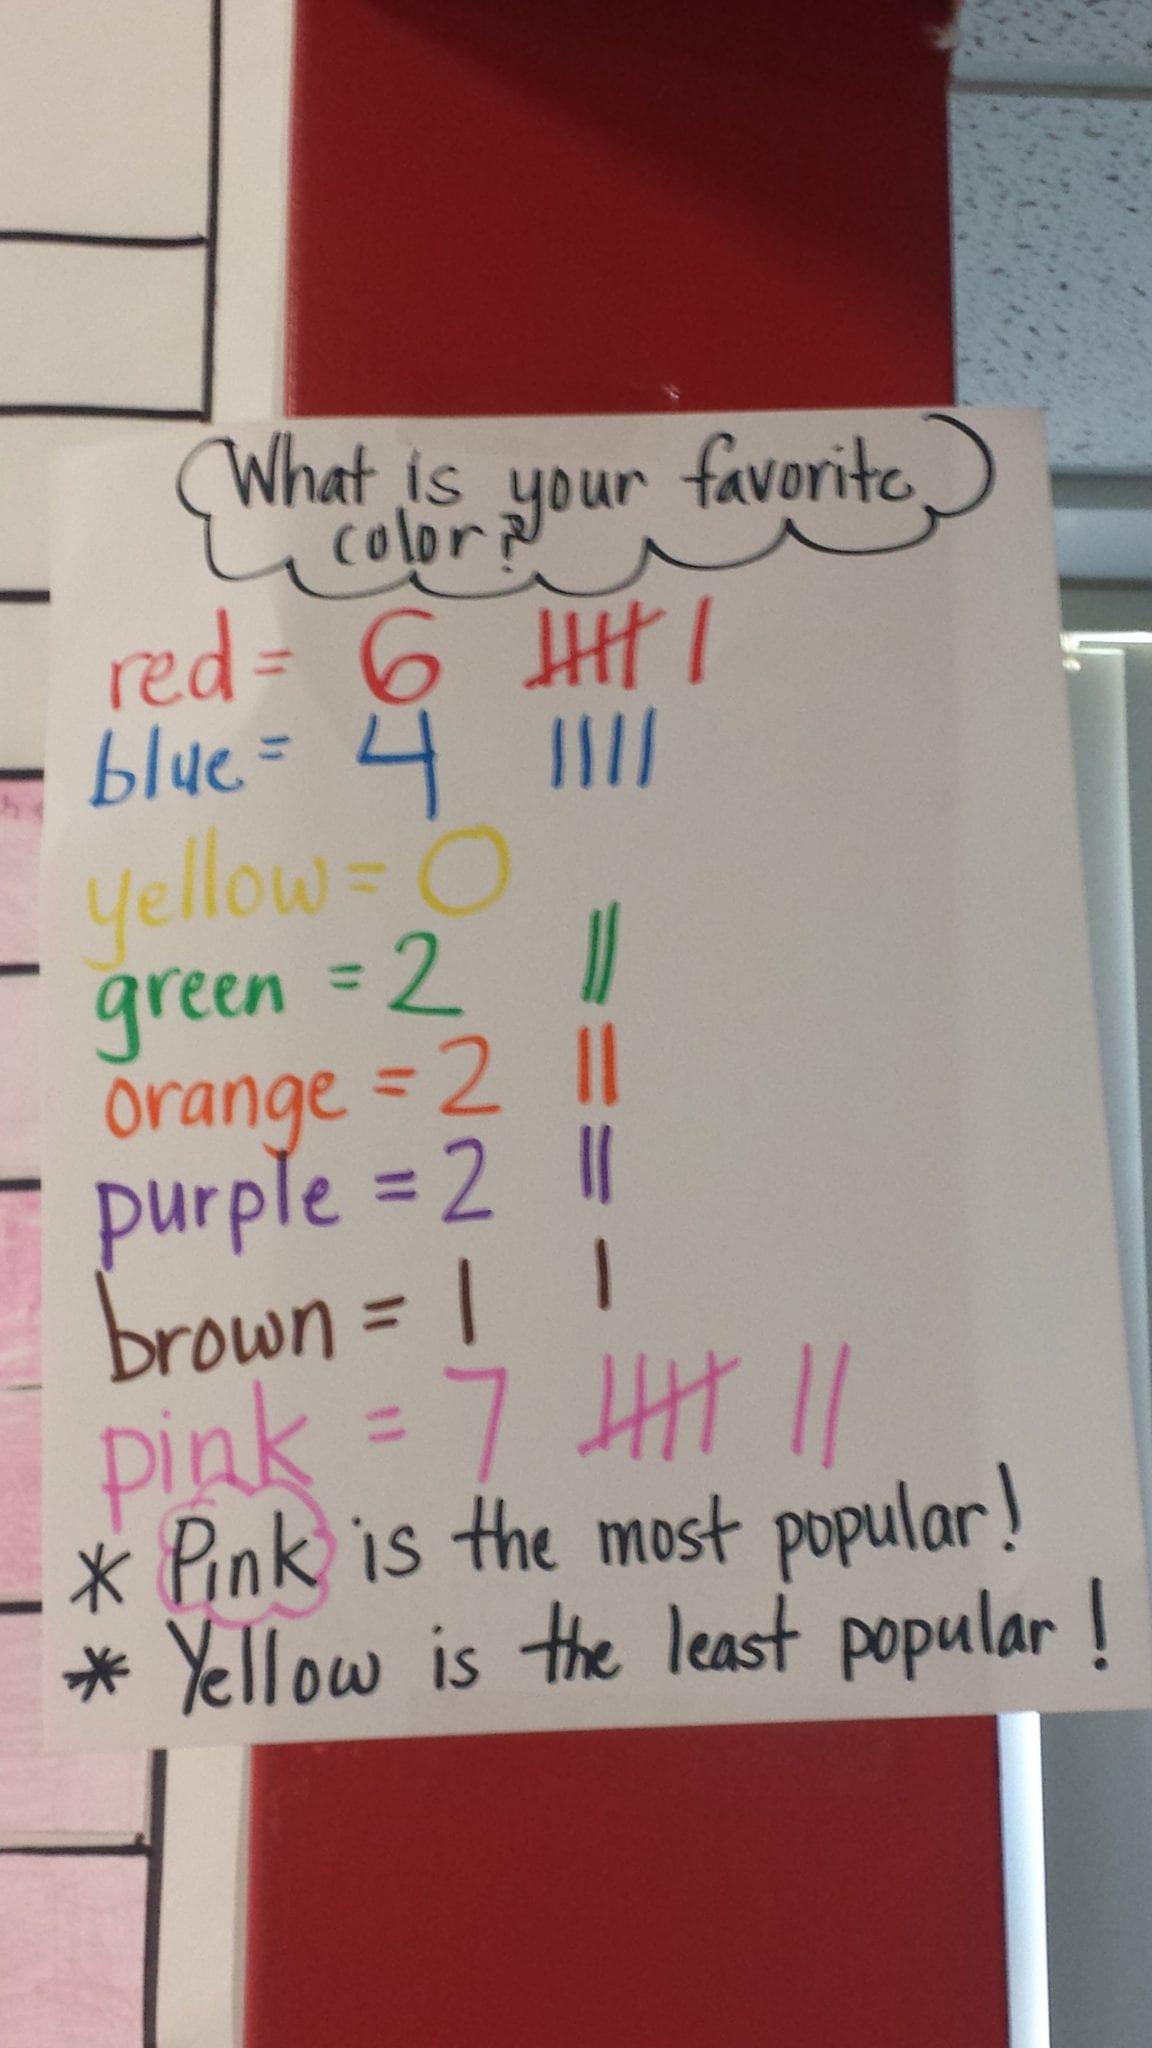 What is your favorite
color?
red = 6 |||| |
blue = 4 ||||
yellow = 0
green = 2 ||
orange = 2 ||
purple = 2 ||
brown = 1 |
pink = 7 |||| ||
* Pink is the most popular!
* Yellow is the least popular!